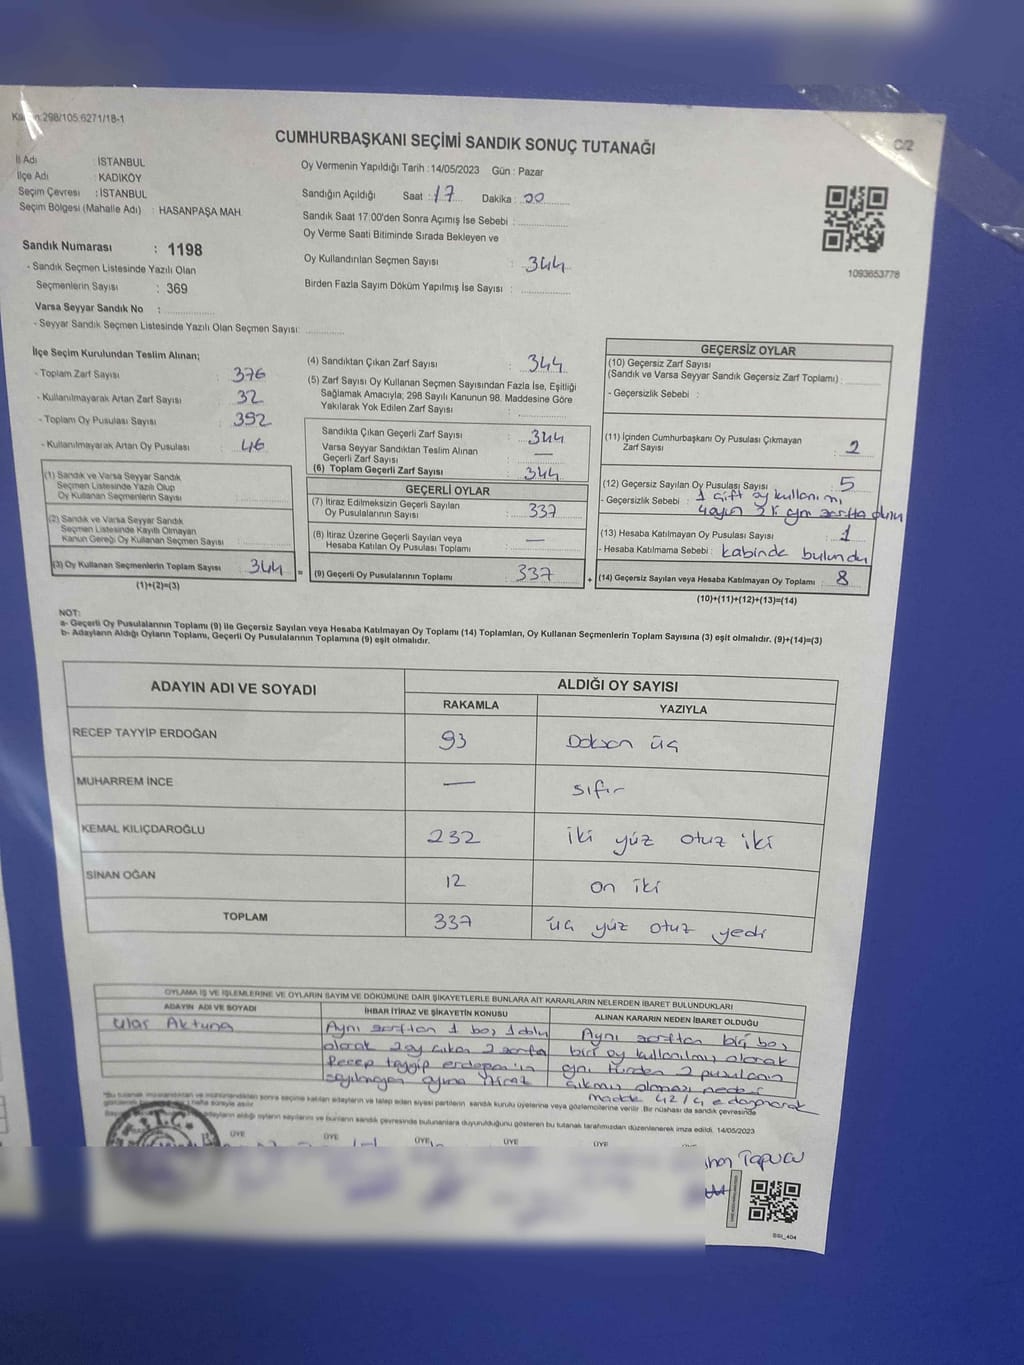 298/105:6271/18-1
CUMHURBAŞKANI SEÇİMİ SANDIK SONUÇ TUTANAĞI
C/2
İl Adı : İSTANBUL
İlçe Adı : KADIKÖY
Seçim Çevresi : İSTANBUL
Seçim Bölgesi (Mahalle Adı) : HASANPAŞA MAH.
Oy Vermenin Yapıldığı Tarih : 14/05/2023 Gün : Pazar
Sandığın Açıldığı Saat : 17 Dakika : 00
Sandık Saat 17:00'den Sonra Açımış İse Sebebi :
Oy Verme Saati Bitiminde Sırada Bekleyen ve
Oy Kullandırılan Seçmen Sayısı : 344
Birden Fazla Sayım Döküm Yapılmış İse Sayısı :
1093653778
Sandık Numarası : 1198
- Sandık Seçmen Listesinde Yazılı Olan
Seçmenlerin Sayısı : 369
Varsa Seyyar Sandık No :
- Seyyar Sandık Seçmen Listesinde Yazılı Olan Seçmen Sayısı:
İlçe Seçim Kurulundan Teslim Alınan;
- Toplam Zarf Sayısı : 376
- Kullanılmayarak Artan Zarf Sayısı : 32
- Toplam Oy Pusulası Sayısı : 392
- Kullanılmayarak Artan Oy Pusulası : 46
(1) Sandık ve Varsa Seyyar Sandık
Seçmen Listesinde Yazılı Olup
Oy Kullanan Seçmenlerin Sayısı :
(2) Sandık ve Varsa Seyyar Sandık
Seçmen Listesinde Kayıtlı Olmayan
Kanun Gereği Oy Kullanan Seçmen Sayısı :
(3) Oy Kullanan Seçmenlerin Toplam Sayısı : 344 =
(1)+(2)=(3)
(4) Sandıktan Çıkan Zarf Sayısı : 344
(5) Zarf Sayısı Oy Kullanan Seçmen Sayısından Fazla İse, Eşitliği
Sağlamak Amacıyla; 298 Sayılı Kanunun 98. Maddesine Göre
Yakılarak Yok Edilen Zarf Sayısı :
Sandıkta Çıkan Geçerli Zarf Sayısı : 344
Varsa Seyyar Sandıktan Teslim Alınan
Geçerli Zarf Sayısı : —
(6) Toplam Geçerli Zarf Sayısı : 344
GEÇERLİ OYLAR
(7) İtiraz Edilmeksizin Geçerli Sayılan
Oy Pusulalarının Sayısı : 337
(8) İtiraz Üzerine Geçerli Sayılan veya
Hesaba Katılan Oy Pusulası Toplamı : —
(9) Geçerli Oy Pusulalarının Toplamı : 337 +
GEÇERSİZ OYLAR
(10) Geçersiz Zarf Sayısı
(Sandık ve Varsa Seyyar Sandık Geçersiz Zarf Toplamı) :
- Geçersizlik Sebebi :
(11) İçinden Cumhurbaşkanı Oy Pusulası Çıkmayan
Zarf Sayısı : 2
(12) Geçersiz Sayılan Oy Pusulası Sayısı : 5
- Geçersizlik Sebebi : 1 çift oy kullanımı
2 aynı zarfta
(13) Hesaba Katılmayan Oy Pusulası Sayısı : 1
- Hesaba Katılmama Sebebi : kabinde bulundu
(14) Geçersiz Sayılan veya Hesaba Katılmayan Oy Toplamı : 8
(10)+(11)+(12)+(13)=(14)
NOT:
a- Geçerli Oy Pusulalarının Toplamı (9) ile Geçersiz Sayılan veya Hesaba Katılmayan Oy Toplamı (14) Toplamları, Oy Kullanan Seçmenlerin Toplam Sayısına (3) eşit olmalıdır. (9)+(14)=(3)
b- Adayların Aldığı Oyların Toplamı, Geçerli Oy Pusulalarının Toplamına (9) eşit olmalıdır.
ADAYIN ADI VE SOYADI
ALDIĞI OY SAYISI
RAKAMLA YAZIYLA
RECEP TAYYİP ERDOĞAN 93 Doksan üç
MUHARREM İNCE — sıfır
KEMAL KILIÇDAROĞLU 232 iki yüz otuz iki
SİNAN OĞAN 12 on iki
TOPLAM 337 üç yüz otuz yedi
OYLAMA İŞ VE İŞLEMLERİNE VE OYLARIN SAYIM VE DÖKÜMÜNE DAİR ŞİKAYETLERLE BUNLARA AİT KARARLARIN NELERDEN İBARET BULUNDUKLARI
ADAYIN ADI VE SOYADI İHBAR İTİRAZ VE ŞİKAYETİN KONUSU ALINAN KARARIN NEDEN İBARET OLDUĞU
Ulaş Aktuna Aynı zarftan 1 boş 1 dolu Aynı zarftan biri boş
olarak 2 oy çıkan 2 zarfta biri oy kullanılmış olarak
Recep tayyip erdoğan'ın aynı türden 2 pusulanın
sayılmayan oyuna itiraz çıkmış olması nedeni
madde 42/4 e dayanarak
adayların aldığı oyların sayılarını ve bunların sandık çevresinde bulunanlara duyurulduğunu gösteren bu tutanak tarafımızdan düzenlenerek imza edildi. 14/05/2023
T.C.
ÜYE ÜYE ÜYE ÜYE ÜYE
Tapucu
SSI_404